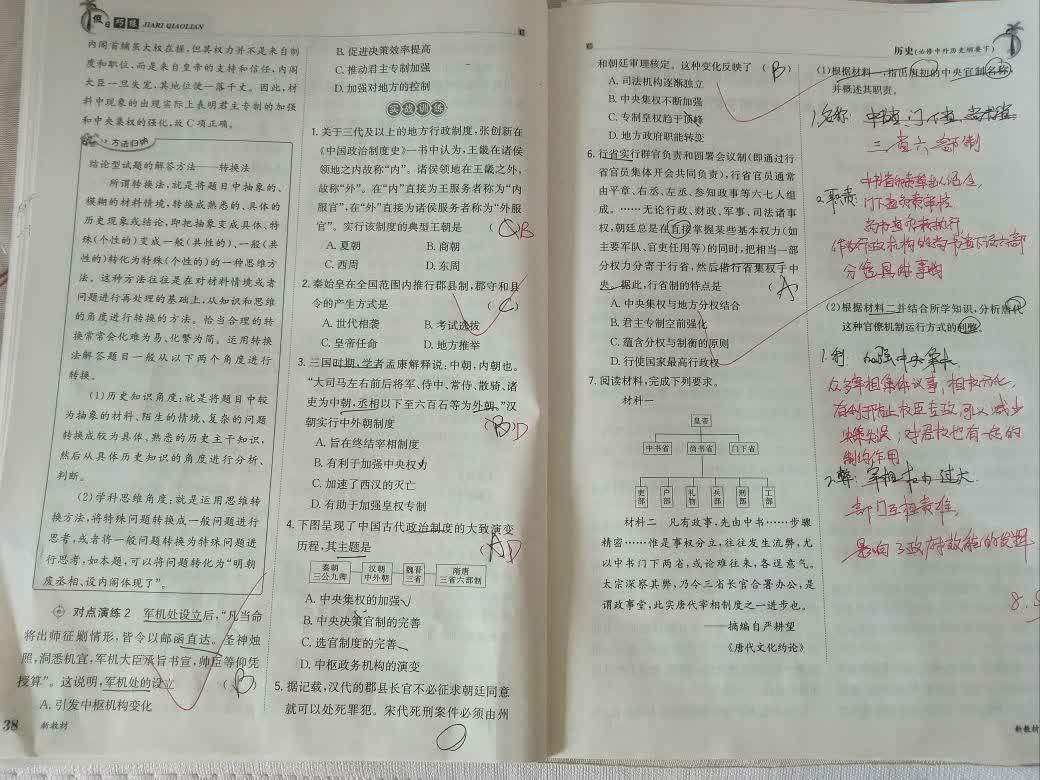 假日巧练 JIARI QIAOLIAN
内阁首辅虽大权在握,但其权力并不是来自制
度和职位,而是来自皇帝的支持和信任,内阁
大臣一旦失宠,其地位便一落千丈。因此,材
料中现象的出现实际上表明君主专制的加强
和中央集权的强化,故C项正确。
方法归纳
结论型试题的解答方法——转换法
所谓转换法,就是将题目中抽象的、
模糊的材料情境,转换成熟悉的、具体的
历史现象或结论,即把抽象变成具体、特
殊(个性的)变成一般(共性的)、一般(共
性的)转化为特殊(个性的)的一种思维方
法。这种方法往往是在对材料情境或者
问题进行再处理的基础上,从知识和思维
的角度进行转换的方法。恰当合理的转
换常常会化难为易、化繁为简。运用转换
法解答题目一般从以下两个角度进行
转换。
(1)历史知识角度:就是将题目中较
为抽象的材料、陌生的情境、复杂的问题
转换成较为具体、熟悉的历史主干知识,
然后从具体历史知识的角度进行分析、
判断。
(2)学科思维角度:就是运用思维转
换方法,将特殊问题转换成一般问题进行
思考,或者将一般问题转换为特殊问题进
行思考,如本题,可以将问题转化为“明朝
废丞相、设内阁体现了”。
对点演练2 军机处设立后,“凡当命
将出师征剿情形,皆令以邮函直达。圣神烛
照,洞悉机宜,军机大臣承旨书宣,帅臣等仰凭
授算”。这说明,军机处的设立 (B)
A. 引发中枢机构变化
38 新教材
B. 促进决策效率提高
C. 推动君主专制加强
D. 加强对地方的控制
实战训练
1. 关于三代及以上的地方行政制度,张创新在
《中国政治制度史》一书中认为,王畿在诸侯
领地之内故称“内”。诸侯领地在王畿之外,
故称“外”。在“内”直接为王服务者称为“内
服官”,在“外”直接为诸侯服务者称为“外服
官”。实行该制度的典型王朝是 ( B
A. 夏朝 B. 商朝
C. 西周 D. 东周
2. 秦始皇在全国范围内推行郡县制,郡守和县
令的产生方式是 (C
A. 世代相袭 B. 考试选拔
C. 皇帝任命 D. 地方推举
3. 三国时期,学者孟康解释说:中朝,内朝也。
“大司马左右前后将军、侍中、常侍、散骑、诸
吏为中朝,丞相以下至六百石等为外朝。”汉
朝实行中外朝制度 (B)D
A. 旨在终结宰相制度
B. 有利于加强中央权力
C. 加速了西汉的灭亡
D. 有助于加强皇权专制
4. 下图呈现了中国古代政治制度的大致演变
历程,其主题是 (A D
秦朝 三公九卿 汉朝 中外朝 魏晋 三省 隋唐 三省六部制
A. 中央集权的加强
B. 中央决策官制的完善
C. 选官制度的完善
D. 中枢政务机构的演变
5. 据记载,汉代的郡县长官不必征求朝廷同意
就可以处死罪犯。宋代死刑案件必须由州
历史(必修中外历史纲要下)
和朝廷审理核定。这种变化反映了 (B)
A. 司法机构逐渐独立
B. 中央集权不断加强
C. 专制皇权趋于顶峰
D. 地方政府职能转变
6. 行省实行群官负责和圆署会议制(即通过行
省官员集体开会共同负责),行省官员通常
由平章、右丞、左丞、参知政事等六七人组
成。……无论行政、财政、军事、司法诸事
权,朝廷总是在直接掌握某些基本权力(如
主要军队、官吏任用等)的同时,把相当一部
分权力分寄于行省,然后借行省集权于中
央。据此,行省制的特点是 (A)
A. 中央集权与地方分权结合
B. 君主专制空前强化
C. 蕴含分权与制衡的原则
D. 行使国家最高行政权
7. 阅读材料,完成下列要求。
材料一
皇帝
中书省 尚书省 门下省
吏部 户部 礼部 兵部 刑部 工部
材料二 凡有政事,先由中书……步骤
精密……惟是事权分立,往往发生流弊,尤
以中书门下两省,或论难往来,各逞意气。
太宗深察其弊,乃令三省长官合署办公,是
谓政事堂,此实唐代宰相制度之一进步也。
——摘编自严耕望
《唐代文化约论》
(1)根据材料一,指出唐初的中央官制名称,
并概述其职责。
1.名称 中书、门下省、尚书省
三省六部制
2.职责: 中书省负责草拟诏令,
门下省负责审核
尚书省负责执行
作为行政机构的尚书省下设六部
分管具体事务
(2)根据材料二并结合所学知识,分析唐代
这种官僚机制运行方式的利弊。
1.利: 加强中央集权
众多宰相集体议事,相权分化,
有利于防止权臣专政,可以减少
决策失误;对君权也有一定的
制约作用
2.弊: 宰相权力过大
部门互相责难,
影响了政府效能的发挥
新教材